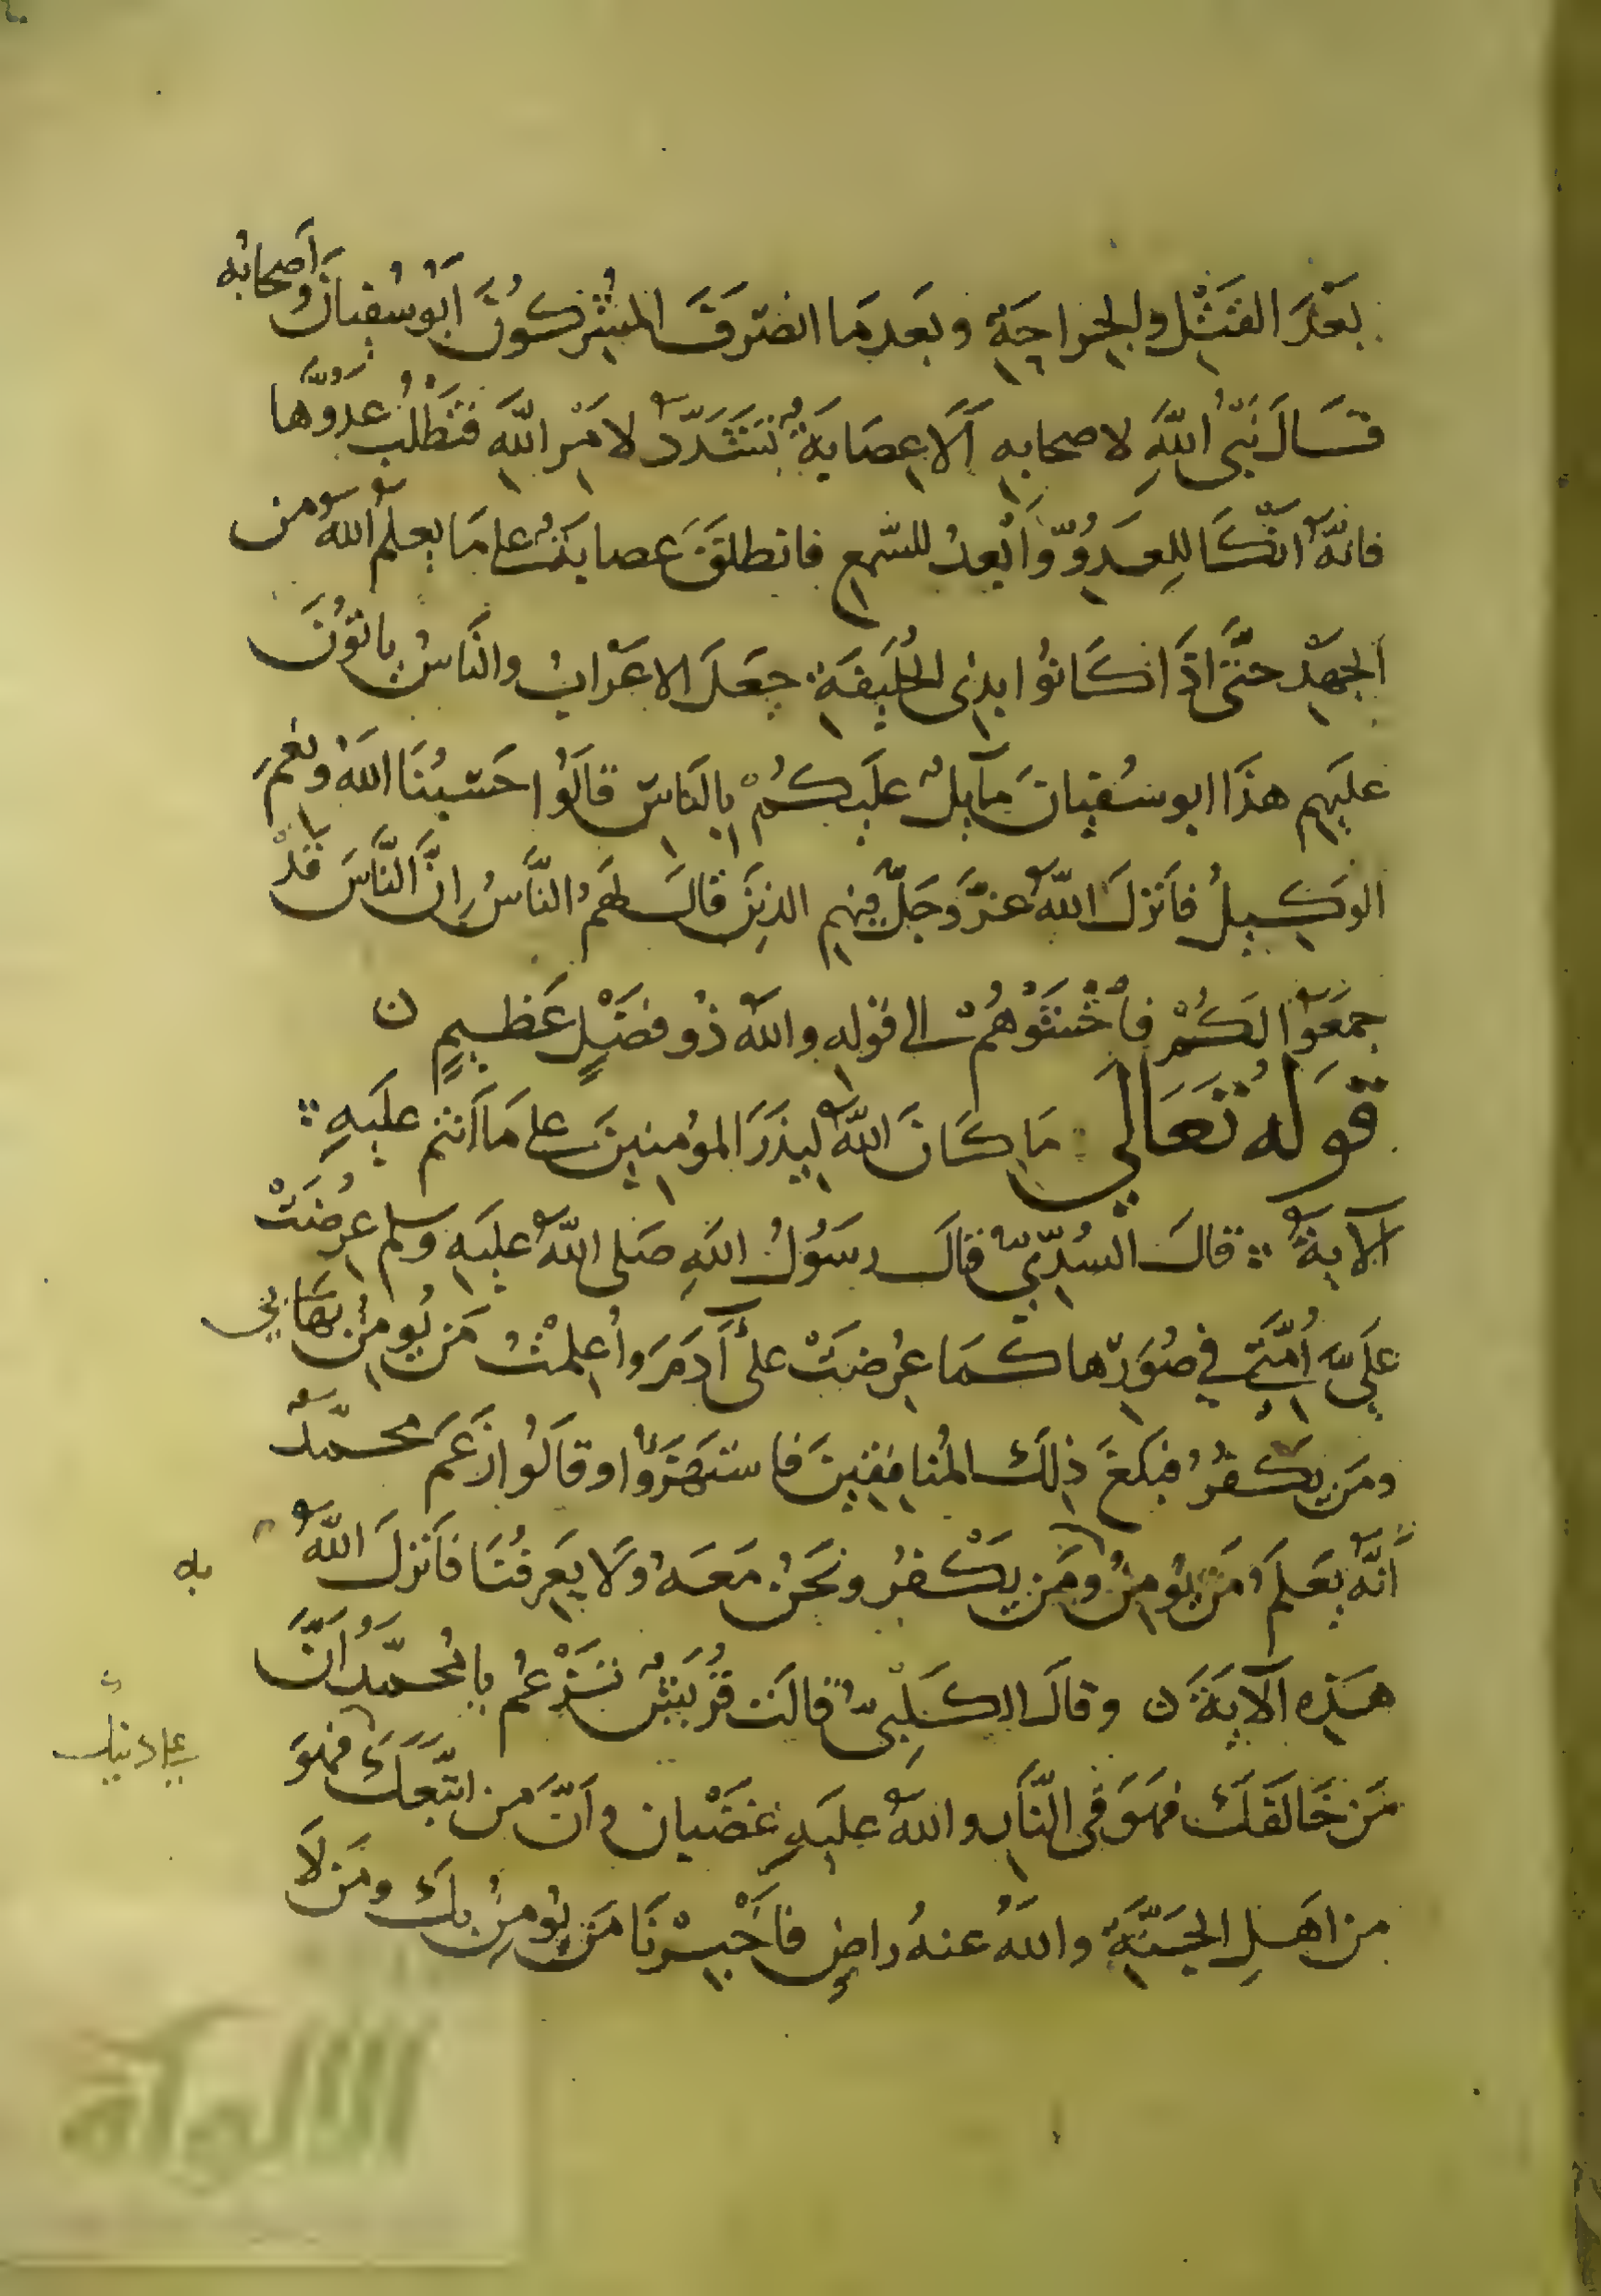 بَعْدَ القَتْلِ والجِراحَةِ وبَعدَ مَا انصَرَفَ المُشْرِكُونَ أبُوسُفيانَ وأصحابُه
فَقَالَ نَبِيُّ اللَّهِ لاصحابِهِ ألَا عِصَابَةٌ تَتَشَدَّدُ لامْرِ اللَّهِ فَتَطْلُبُ عَدُوَّهَا
فانَّهُ انكَا لِلعَدُوِّ وَأَبْعَدُ للسَّمعِ فانطلقَتْ عصابَةٌ على مَا يعلمُ اللهُ من
الجَهْدِ حتَّى اذَا كَانُوا بذِى الحُلَيفَةِ جَعَلَ الاعْرَابُ والنَّاسُ ياتُونَ
عَلَيهِم هذَا ابوسُفيانَ مَآيِلٌ عَلَيكُمْ بِالنَّاسِ قالُوا حَسْبُنَا اللَّهُ ونِعْمَ
الوَكِيلُ فأنزلَ اللَّهُ عزَّ وَجَلَّ فيهم الذينَ قالَ لَهُمُ النَّاسُ إنَّ النَّاسَ قَدْ
جمَعُوا لَكُمْ فاخْشَوْهُمْ الى قوْلِه واللَّهُ ذُو فَضْلٍ عَظيمٍ ن
قَولُه تَعَالى مَا كَانَ اللَّهُ لِيَذَرَ المُؤمِنينَ على مَا أنتم عَلَيهِ
الآيةَ قالَ السُّدِّيُّ قالَ رسُولُ اللَّهِ صَلى اللَّهُ عَلَيهِ وسلم عُرِضَتْ
عَلَيَّ أُمَّتِي في صُوَرِهَا كَمَا عُرِضَتْ عَلَى آدَمَ وأُعلِمْتُ مَن يُومِنُ بي
ومَن يَكفُرُ فبَلَغَ ذلِكَ المُنافِقينَ فاستَهزَؤُا وقالُوا زَعَمَ محمّدٌ
أنَّهُ يَعلَمُ مَن يُومِنُ ومَن يَكْفُرُ ونَحنُ مَعَهُ ولَا يَعرِفُنَا فأنزَلَ اللَّهُ
به
هَذِهِ الآيَةَ ن وقالَ الكَلبيُّ قالَت قُرَيشٌ تَزْعُمُ يا مُحمّدُ أنَّ
مَن خَالَفَكَ فهوَ في النَّارِ واللَّهُ عَلَيهِ غَضْبان وأنَّ مَن اتَّبَعَكَ فهوَ
من اهلِ الجنَّةِ واللَّهُ عنهُ راضٍ فأَخْبِرْنَا مَن يُومِنُ بكَ ومَن لَا
الألوكة